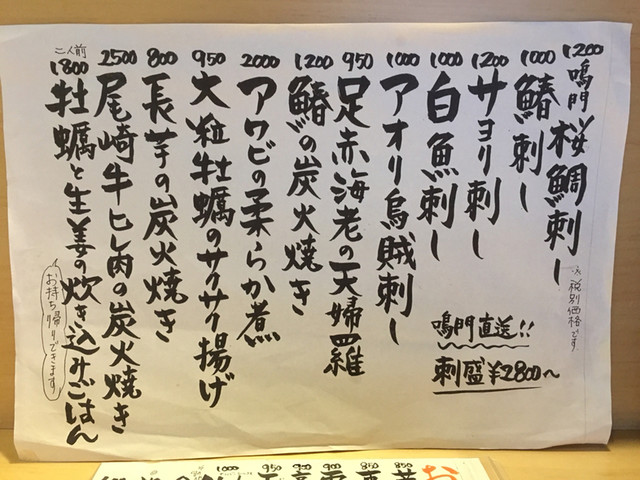 1200 鳴門桜鯛刺し
※税別価格です
1000 鰆刺し
1200 サヨリ刺し
1000 白魚刺し
鳴門直送!!
刺盛¥2800〜
1000 アオリ烏賊刺し
950 足赤海老の天婦羅
1200 鰆の炭火焼き
2000 アワビの柔らか煮
950 大粒牡蠣のサクサク揚げ
800 長芋の炭火焼き
2500 尾崎牛ヒレ肉の炭火焼き
二人前
1800 牡蠣と生姜の炊き込みごはん
お持ち帰りできます
850
850
900
900
950
1000